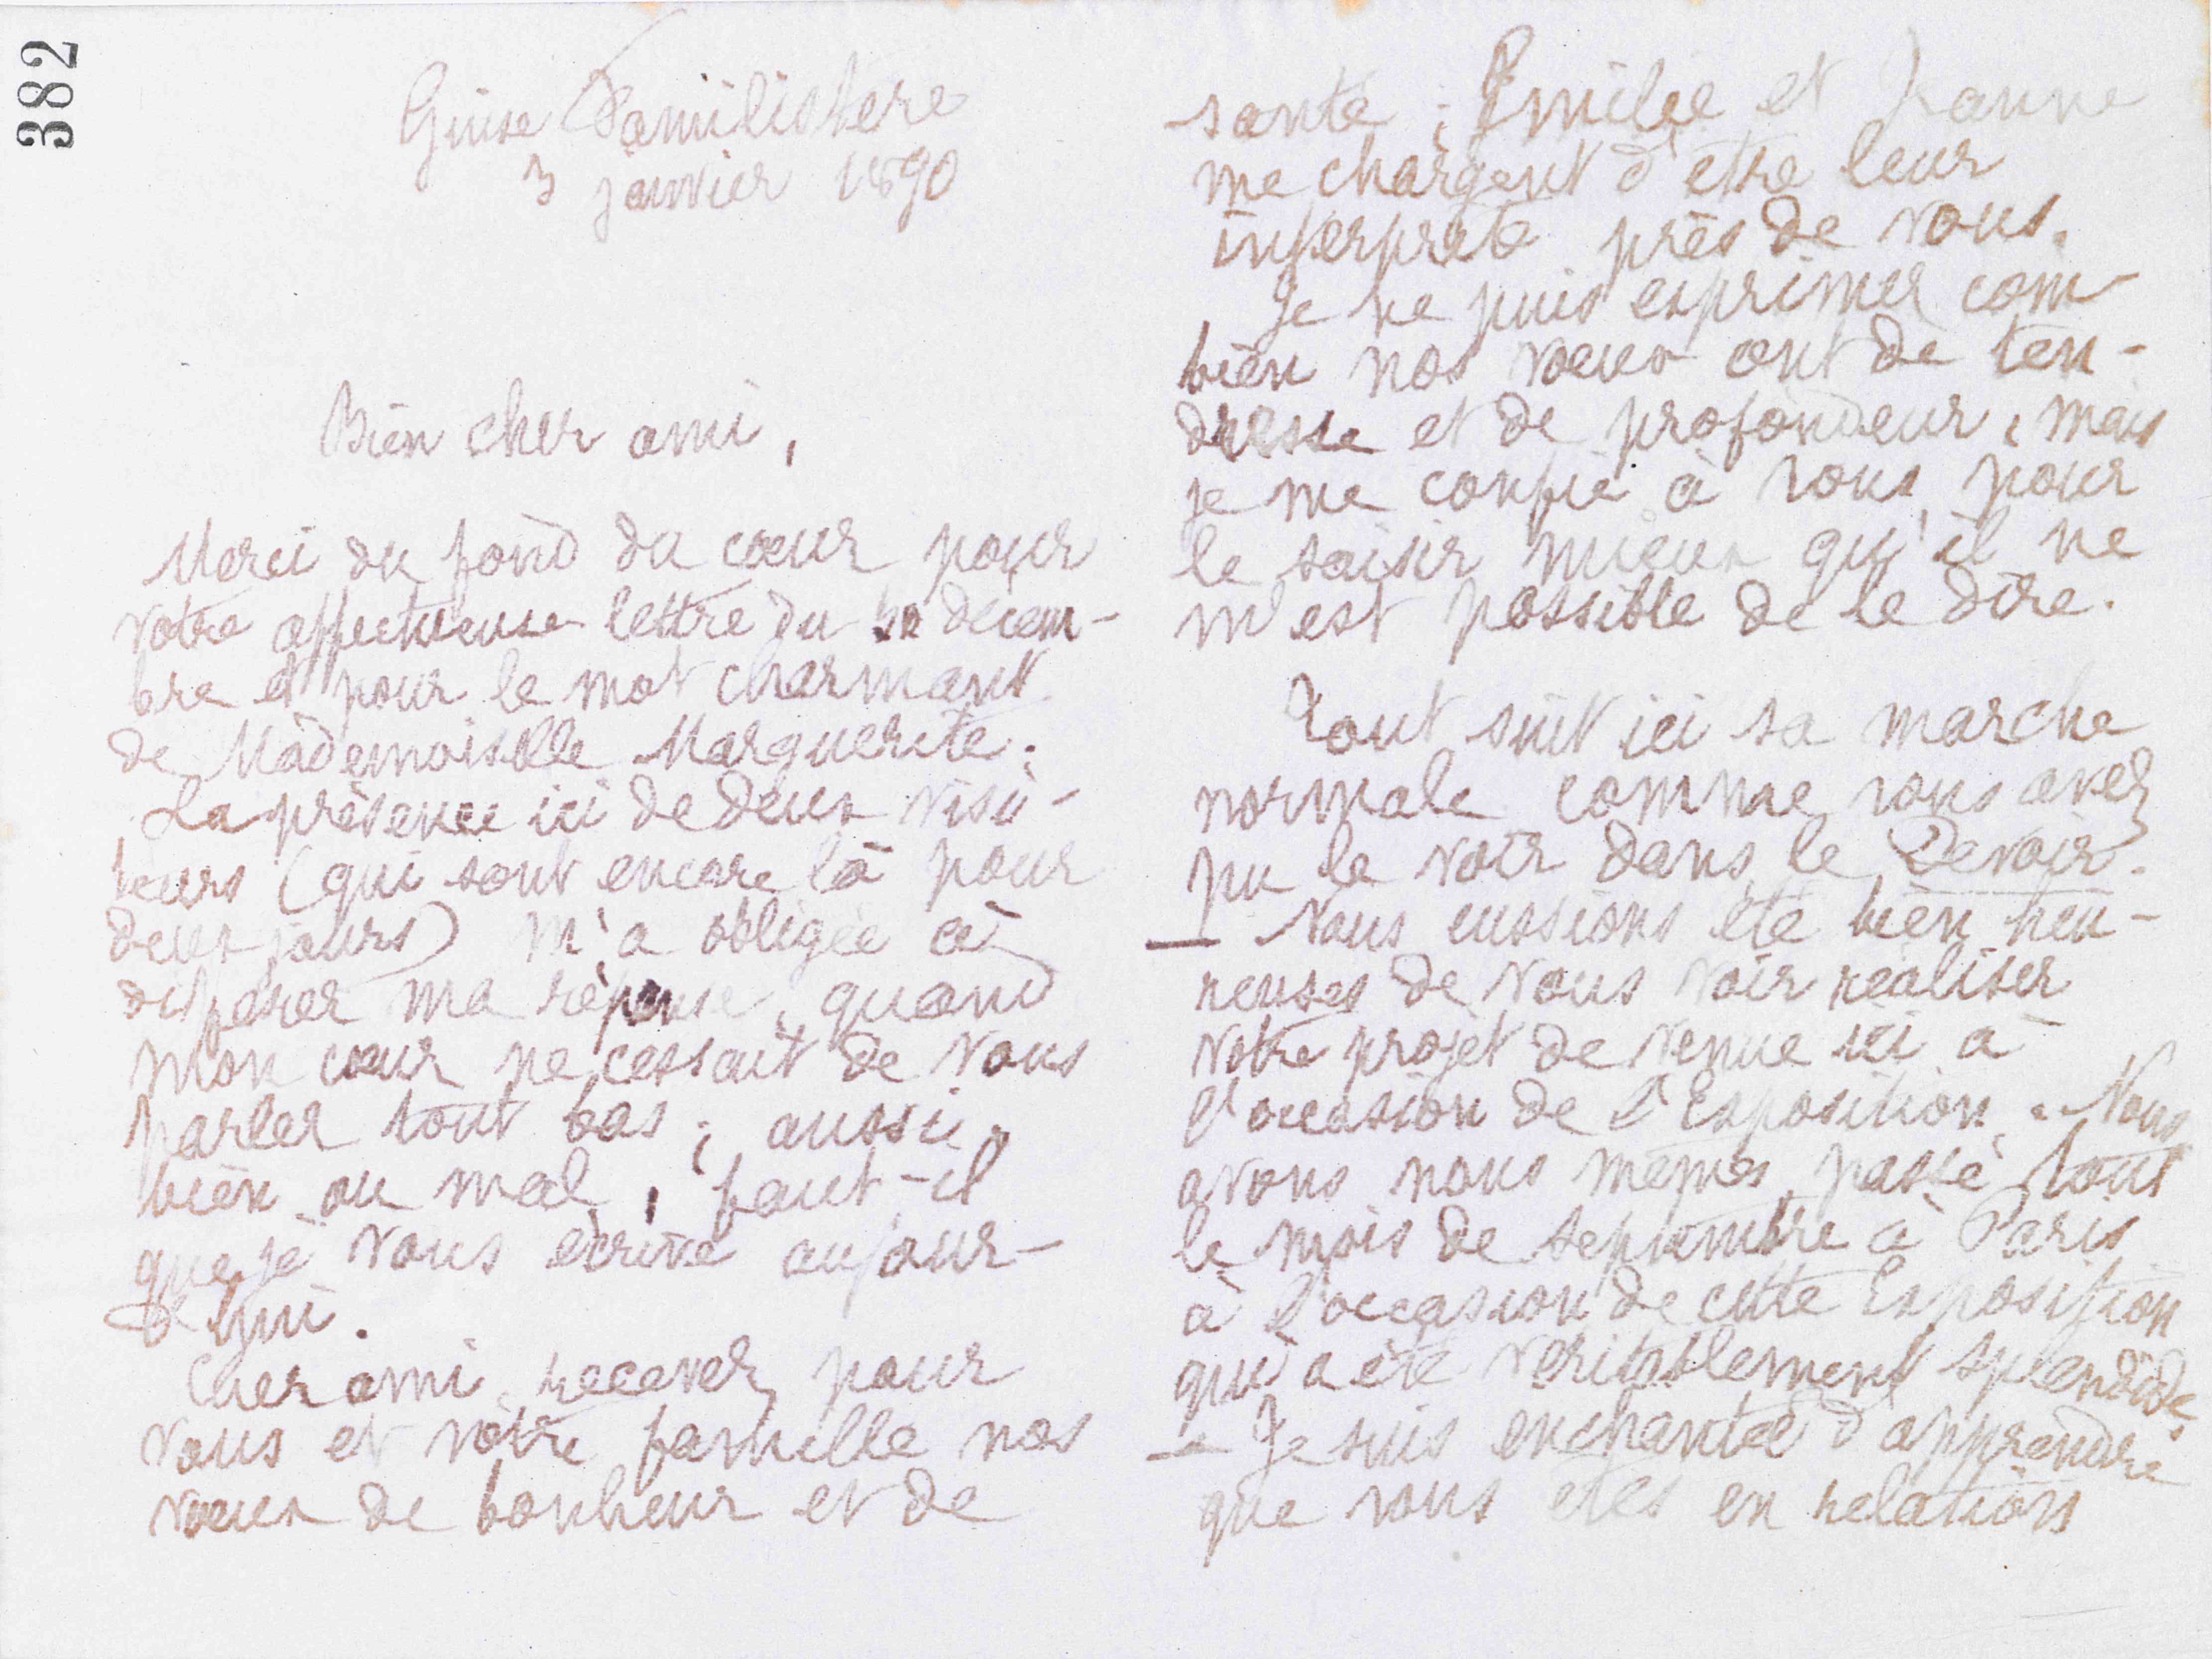 382
Guise Familistere
3 janvier 1890
Bien cher ami,
Merci du fond du cœur pour
votre affectueuse lettre du décem-
bre et pour le mot charmant
de Mademoiselle Marguerite.
La présence ici de deux visi-
teurs (qui sont encore là pour
deux jours) m'a obligée à
différer ma réponse, quand
mon cœur ne cessait de vous
parler tout bas ; aussi,
bien ou mal, faut-il
que je vous écrive aujour-
d'hui.
Cher ami, recevez pour
vous et votre famille nos
vœux de bonheur et de
santé ; Emilie et Jeanne
me chargent d'être leur
interprète près de vous.
Je ne puis exprimer com-
bien nos vœux ont de ten-
dresse et de profondeur, mais
je me confie à vous, pour
le saisir mieux qu'il ne
m'est possible de le dire.
Tout suit ici sa marche
normale comme vous avez
pu le voir dans le Devoir.
— Nous eussions été bien heu-
reuses de vous voir réaliser
votre projet de venue ici à
l'occasion de l'Exposition. Nous
avons nous mêmes passé tout
le mois de septembre à Paris
à l'occasion de cette Exposition
qui a été véritablement splendide.
— Je suis enchantée d'apprendre
que vous êtes en relations